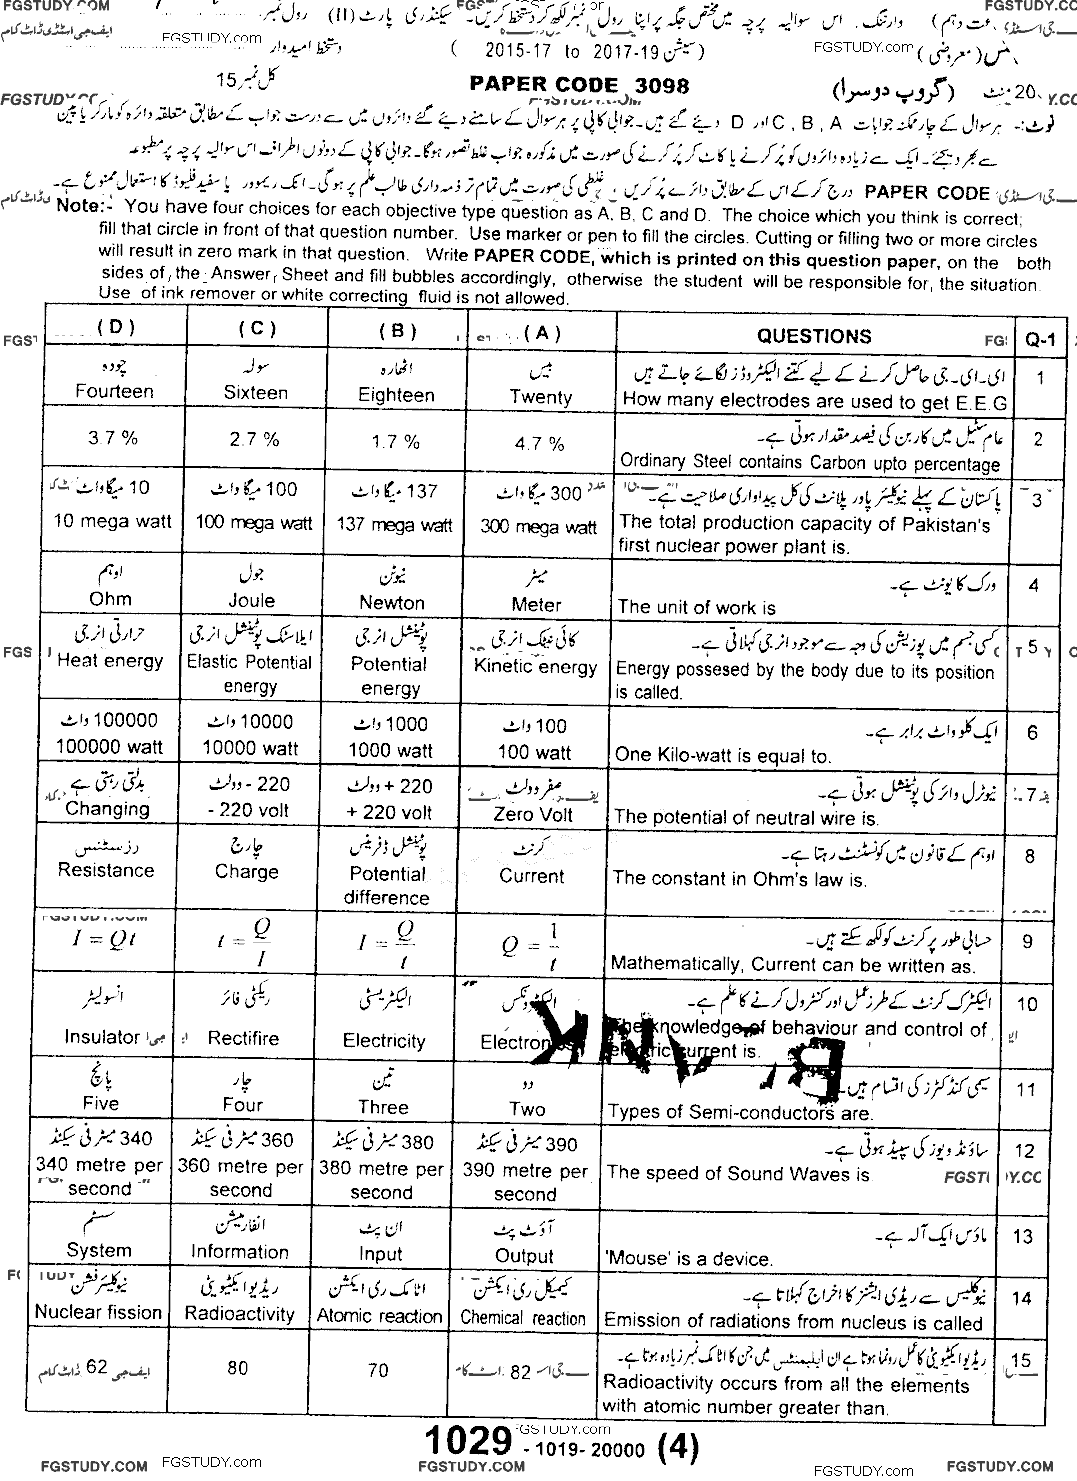 FGSTUDY.COM
وارننگ۔ اس سوالیہ پرچہ میں مختص جگہ پر اپنا رول نمبر لکھ کر دستخط کریں۔ سیکنڈری پارٹ (II) رول نمبر
دستخط امیدوار
(سیشن 2015-17 to 2017-19)
(معروضی)
کل نمبر 15
PAPER CODE 3098
(گروپ دوسرا)
20 منٹ
نوٹ:- ہر سوال کے چار ممکنہ جوابات C , B , A اور D دیئے گئے ہیں۔ جوابی کاپی پر ہر سوال کے سامنے دیئے گئے دائروں میں سے درست جواب کے مطابق متعلقہ دائرہ کو مارکر یا پین
سے بھر دیجئے۔ ایک سے زیادہ دائروں کو پُر کرنے یا کاٹ کر پُر کرنے کی صورت میں مذکورہ جواب غلط تصور ہوگا۔ جوابی کاپی کے دونوں اطراف اس سوالیہ پرچہ پر مطبوعہ
PAPER CODE درج کر کے اس کے مطابق دائرے پُر کریں غلطی کی صورت میں تمام تر ذمہ داری طالب علم پر ہوگی۔ انک ریموور یا سفید فلیوڈ کا استعمال ممنوع ہے۔
Note:- You have four choices for each objective type question as A, B, C and D. The choice which you think is correct;
fill that circle in front of that question number. Use marker or pen to fill the circles. Cutting or filling two or more circles
will result in zero mark in that question. Write PAPER CODE, which is printed on this question paper, on the both
sides of, the Answer, Sheet and fill bubbles accordingly, otherwise the student will be responsible for, the situation.
Use of ink remover or white correcting fluid is not allowed.
(D) (C) (B) (A) QUESTIONS Q-1
چودہ سولہ اٹھارہ بیس ای۔ای۔جی حاصل کرنے کے لیے کتنے الیکٹروڈز لگائے جاتے ہیں 1
Fourteen Sixteen Eighteen Twenty How many electrodes are used to get E.E.G
عام سٹیل میں کاربن کی فیصد مقدار ہوتی ہے۔ 2
3.7 % 2.7 % 1.7 % 4.7 % Ordinary Steel contains Carbon upto percentage
10 میگا واٹ 100 میگا واٹ 137 میگا واٹ 300 میگا واٹ پاکستان کے پہلے نیوکلیئر پاور پلانٹ کی کل پیداواری صلاحیت ہے۔ 3
10 mega watt 100 mega watt 137 mega watt 300 mega watt The total production capacity of Pakistan's
first nuclear power plant is.
اوہم جول نیوٹن میٹر ورک کا یونٹ ہے۔ 4
Ohm Joule Newton Meter The unit of work is
حرارتی انرجی ایلاسٹک پوٹینشل انرجی پوٹینشل انرجی کائی نیٹک انرجی کسی جسم میں پوزیشن کی وجہ سے موجود انرجی کہلاتی ہے۔ 5
Heat energy Elastic Potential Potential Kinetic energy Energy possesed by the body due to its position
energy energy is called.
100000 واٹ 10000 واٹ 1000 واٹ 100 واٹ ایک کلو واٹ برابر ہے۔ 6
100000 watt 10000 watt 1000 watt 100 watt One Kilo-watt is equal to.
بدلتی رہتی ہے 220 - وولٹ 220 + وولٹ صفر وولٹ نیوٹرل وائر کی پوٹینشل ہوتی ہے۔ 7
Changing - 220 volt + 220 volt Zero Volt The potential of neutral wire is.
رزسٹنس چارج پوٹینشل ڈفرینس کرنٹ اوہم کے قانون میں کونسٹنٹ رہتا ہے۔ 8
Resistance Charge Potential Current The constant in Ohm's law is.
difference
حسابی طور پر کرنٹ کو لکھ سکتے ہیں۔ 9
I = Qt t = Q/I I = Q/t Q = 1/t Mathematically, Current can be written as.
انسولیٹر ریکٹی فائر الیکٹریسٹی الیکٹرونکس الیکٹرک کرنٹ کے طرز عمل اور کنٹرول کرنے کا علم ہے۔ 10
Insulator Rectifire Electricity Electronics The knowledge of behaviour and control of
electric current is.
پانچ چار تین دو سیمی کنڈکٹرز کی اقسام ہیں۔ 11
Five Four Three Two Types of Semi-conductors are.
340 میٹر فی سیکنڈ 360 میٹر فی سیکنڈ 380 میٹر فی سیکنڈ 390 میٹر فی سیکنڈ ساؤنڈ ویوز کی سپیڈ ہوتی ہے۔ 12
340 metre per 360 metre per 380 metre per 390 metre per The speed of Sound Waves is
second second second second
سسٹم انفارمیشن ان پٹ آؤٹ پٹ ماؤس ایک آلہ ہے۔ 13
System Information Input Output 'Mouse' is a device.
نیوکلیئر فشن ریڈیو ایکٹیویٹی اٹامک ری ایکشن کیمیکل ری ایکشن نیوکلیس سے ریڈی ایشنز کا اخراج کہلاتا ہے۔ 14
Nuclear fission Radioactivity Atomic reaction Chemical reaction Emission of radiations from nucleus is called
62 80 70 82 ریڈیو ایکٹیویٹی کا عمل رونما ہوتا ہے ان ایلیمنٹس میں جن کا اٹامک نمبر زیادہ ہوتا ہے۔ 15
Radioactivity occurs from all the elements
with atomic number greater than.
1029 - 1019- 20000 (4)
FGSTUDY.COM FGSTUDY.com FGSTUDY.COM FGSTUDY.com FGSTUDY.COM